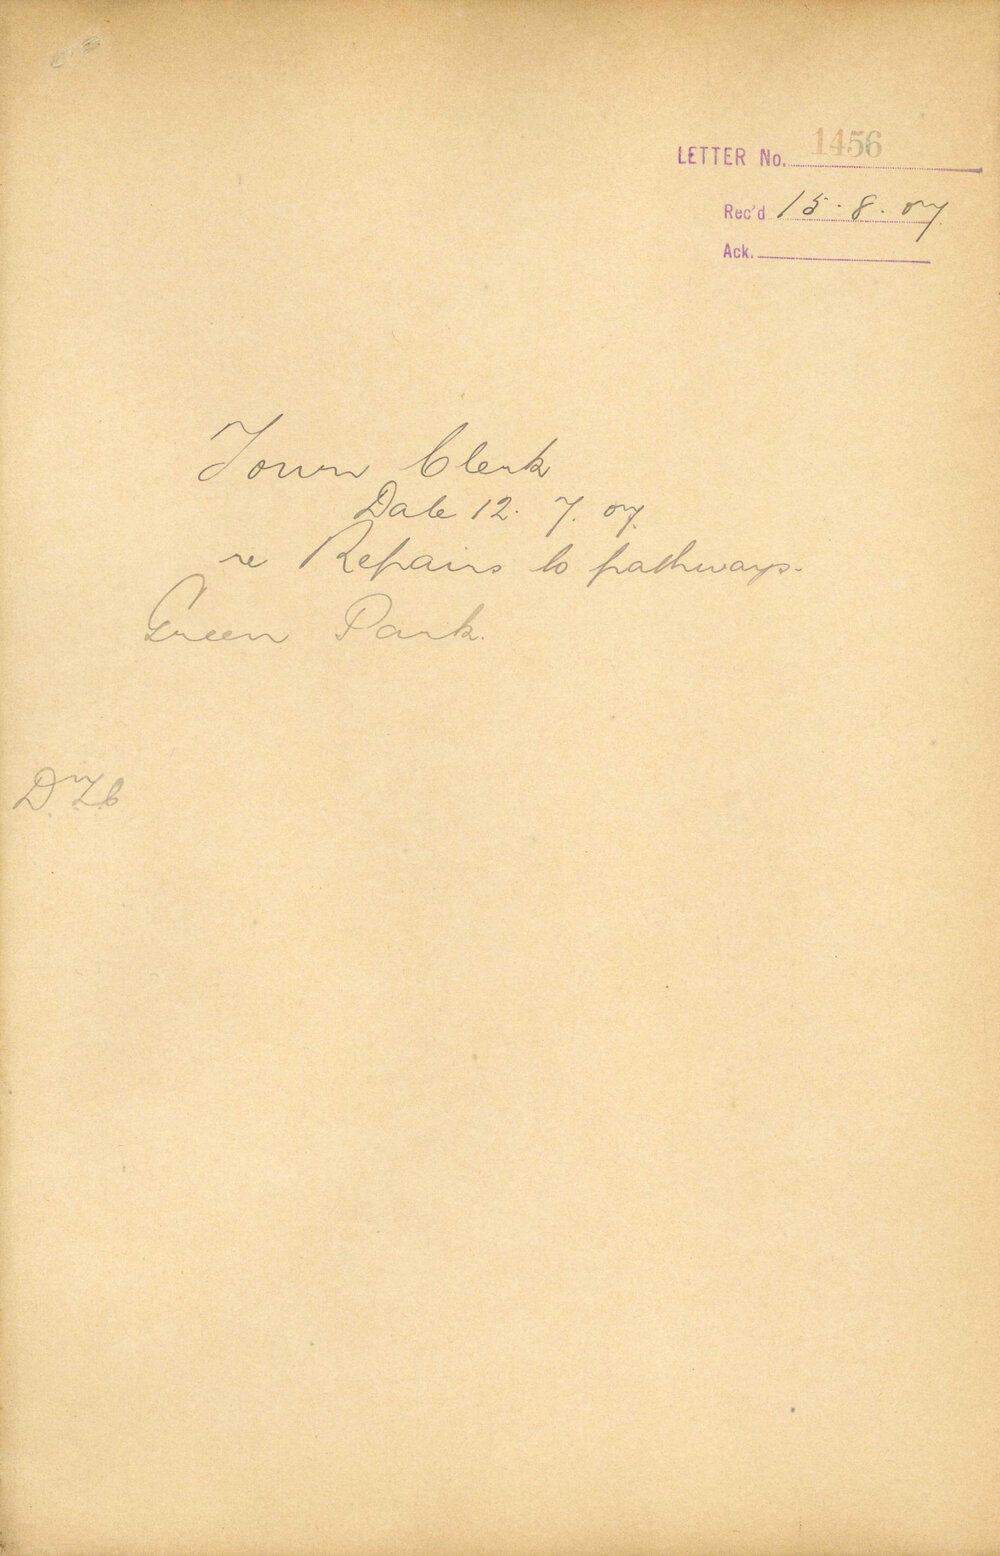 LETTER No. 1456
Rec'd 15.8.07
Ack.
Town Clerk
Date 12.7.07.
re Repairs to pathways.
Green Park.